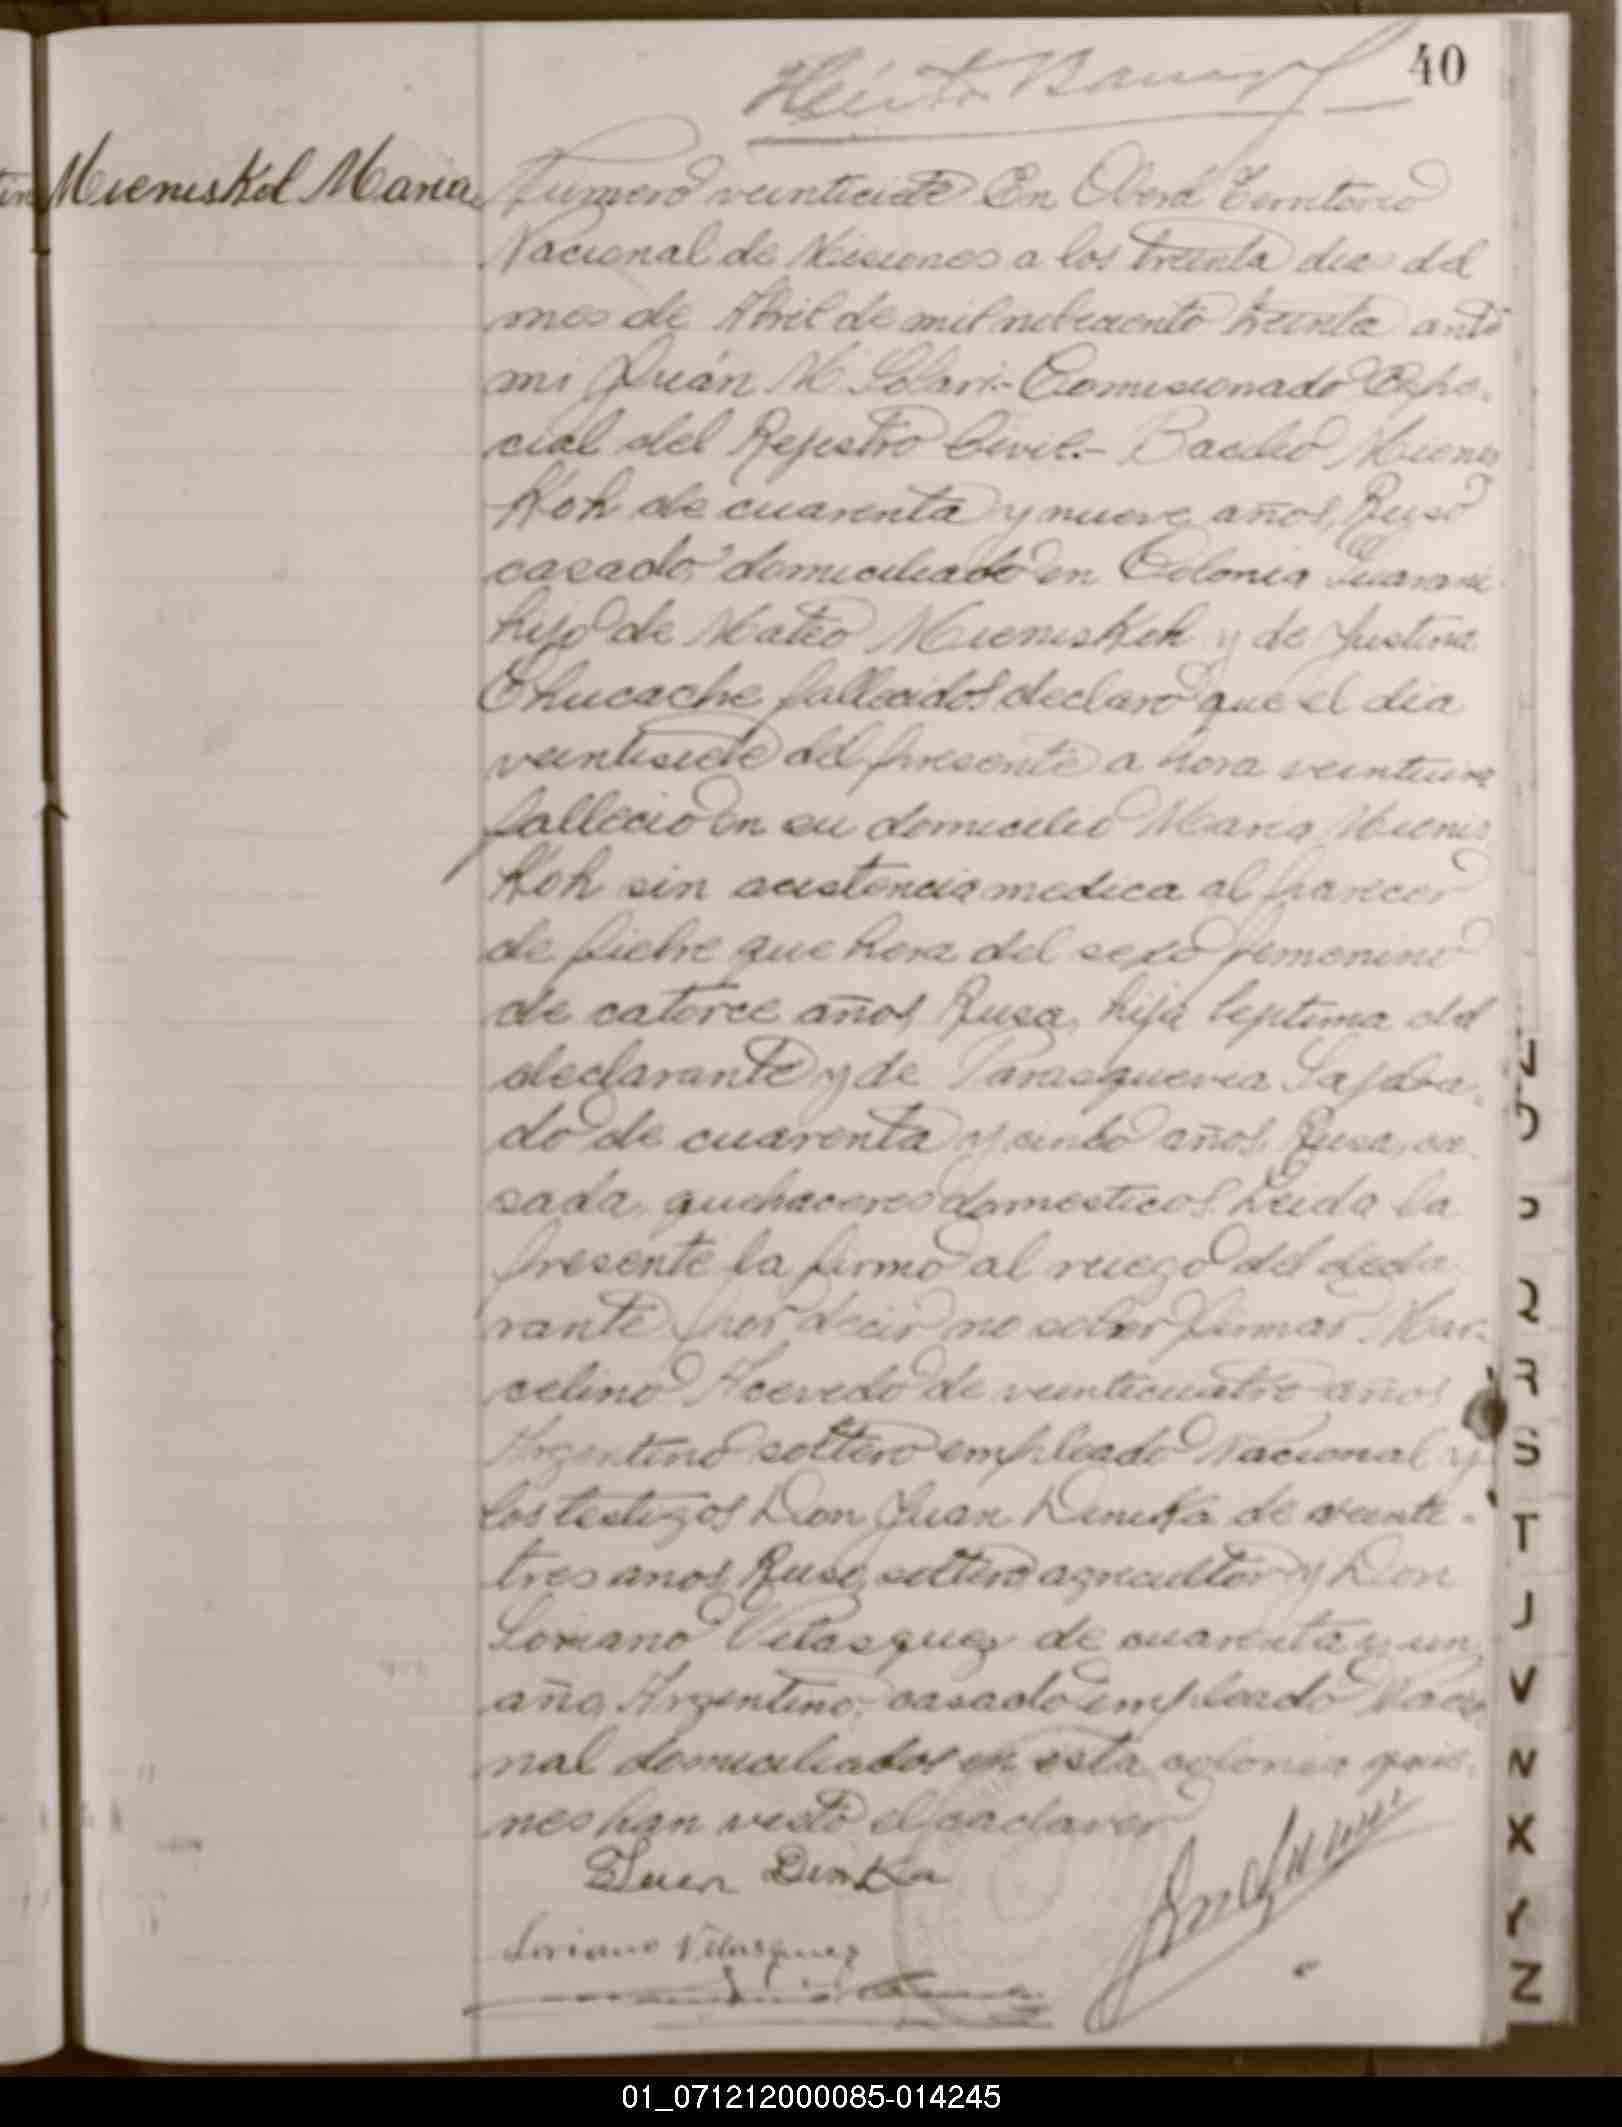 40
Mieniskol Maria
Numero veinticiete En Oberá Territorio
Nacional de Misiones a los treinta dias del
mes de Abril de mil nobeciento treinta ante
mi Juán M. Solari.- Comisionado Espe-
cial del Rejistro Civil.- Bacilio Mienis
Koh de cuarenta y nueve años, Ruso
casado, domiciliado en Colonia Guarani
hijo de Mateo Mieniskoh y de Justina
Chucache fallecidos declaro que el dia
veintisiete del presente a hora veintiuna
fallecio en su domicilio Maria Mienis
Koh sin asistencia medica al parecer
de fiebre que hera del sexo femenino
de catorce años, Rusa, hija septima del
declarante y de Parasquevia
do de cuarenta y cinco años, Rusa, ca-
sada, quehaceres domesticos. Leida la
presente la firmo al ruego del decla
rante por decir no saber firmar. Mar-
celino Acevedo de veinticuatro años
Argentino soltero empleado Nacional y
los testigos Don Juan Dimka de veinte-
tres anos, Ruso, soltero agricultor y Don
Loriano Velasquez de cuarenta y un
año, Argentino, casado empleado Nacio
nal domiciliados en esta colonia quie-
nes han visto el cadaver
Juan Dimka
Loriano Velasquez
N
O
P
Q
R
S
T
U
V
W
X
Y
Z
01_071212000085-014245